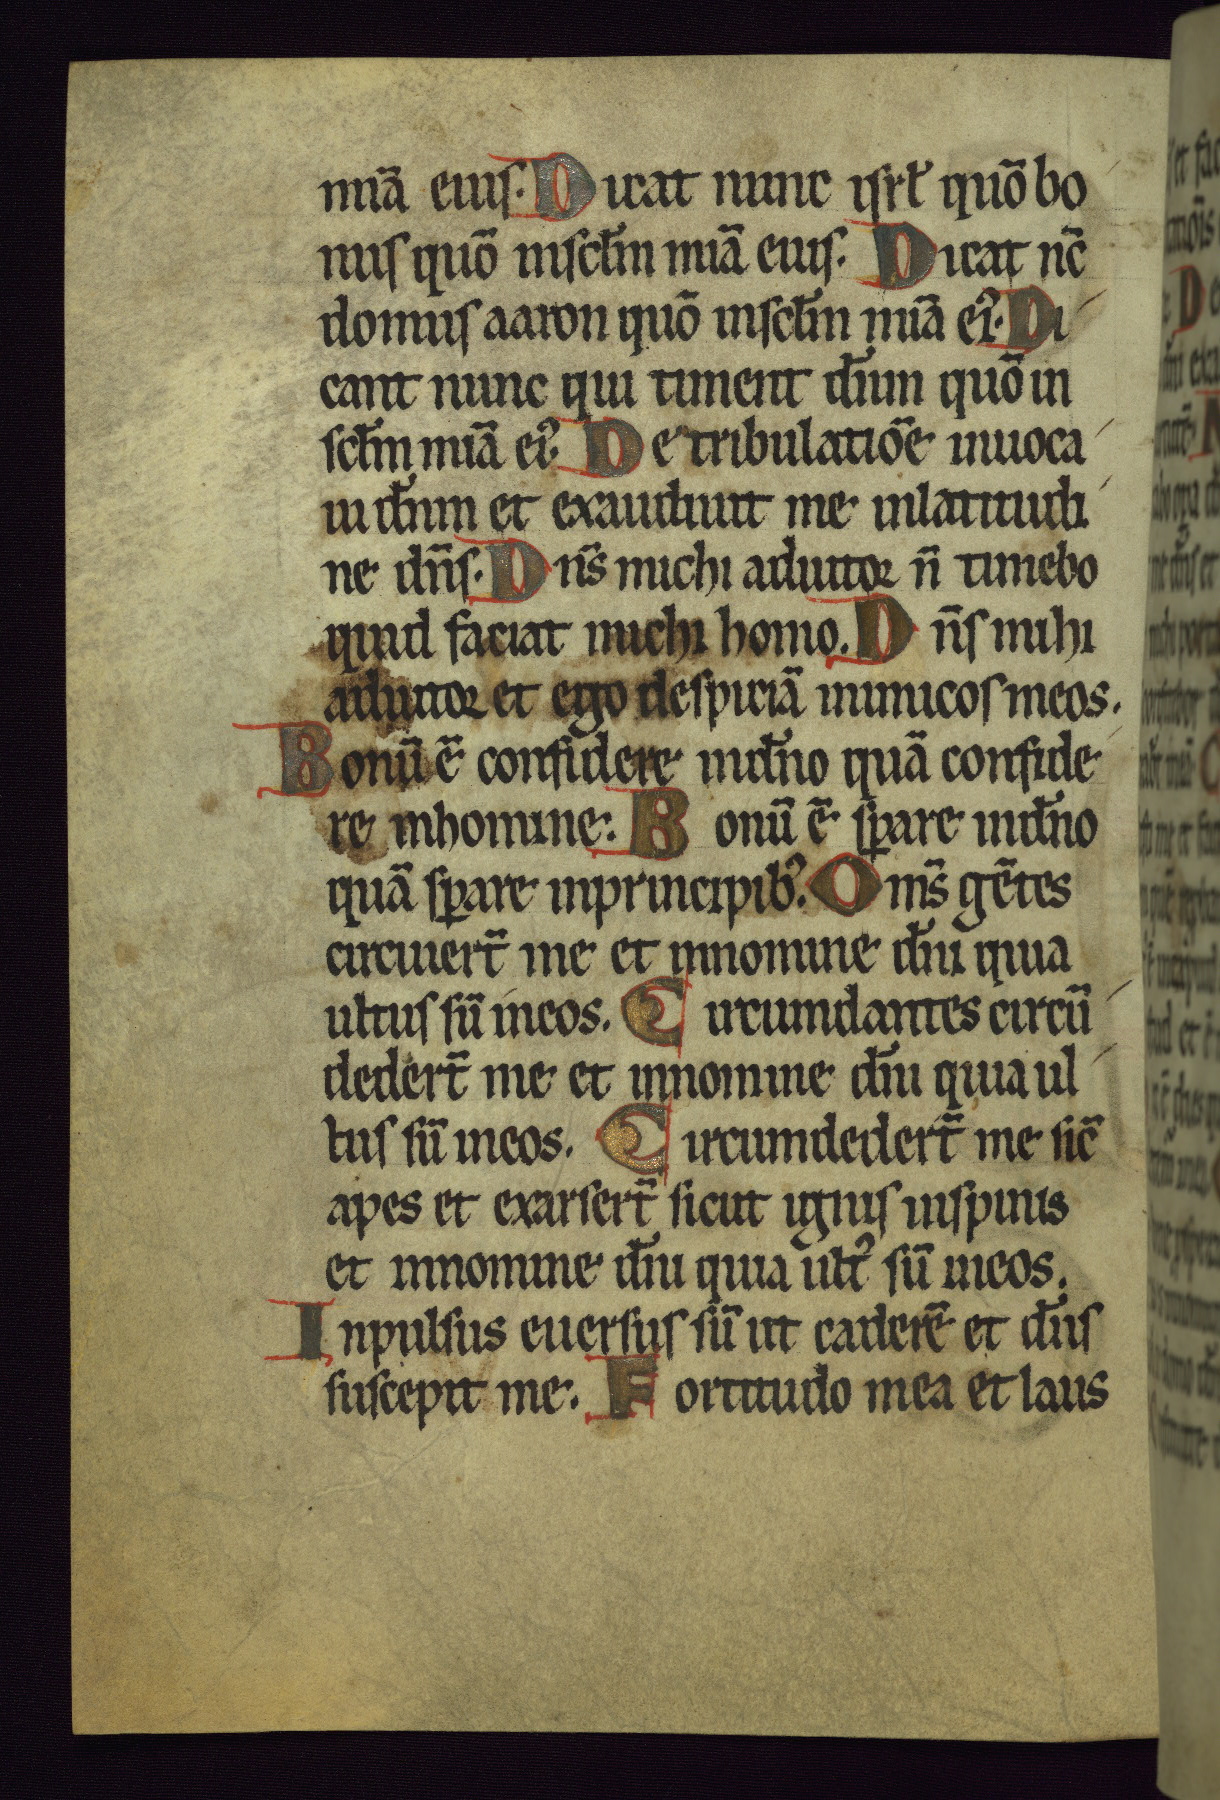 mīa eius. Dicat nunc isrl̄ quō bo
nus quō insclm̄ mīa eius. Dicat nc̄
domus aaron quō insclm̄ mīa eiꝰ. Di
cant nunc qui timent dn̄m quō in
sclm̄ mīa eiꝰ. De tribulatiōe inuoca
ui dn̄m et exaudiuit me inlatitudi
ne dn̄s. Dn̄s michi adiutor n̄ timebo
quid faciat michi homo. Dn̄s mihi
adiutor et ego despiciā inimicos meos.
Bonū ē confidere indn̄o quā confide
re inhomine. Bonū ē sꝑare indn̄o
quā sꝑare inprincipibꝰ. Oms̄ gētes
circuiert̄ me et innomine dn̄i quia
ultus sū ineos. Circumdantes circū
dedert̄ me et innomine dn̄i quia ul
tus sū ineos. Circumdedert̄ me sic̄
apes et exarsert̄ sicut ignis inspinis
et innomine dn̄i quia ultꝰ sū ineos.
Inpulsus euersus sū ut caderē et dn̄s
suscepit me. Fortitudo mea et laus